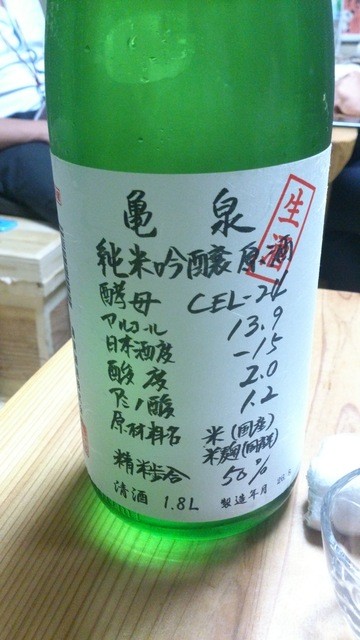 亀泉
生酒
純米吟醸原酒
酵母 CEL-24
アルコール 13.9
日本酒度 -15
酸度 2.0
アミノ酸 1.2
原材料名 米(国産)
米麹(国産米)
精米歩合 50%
清酒 1.8L 製造年月